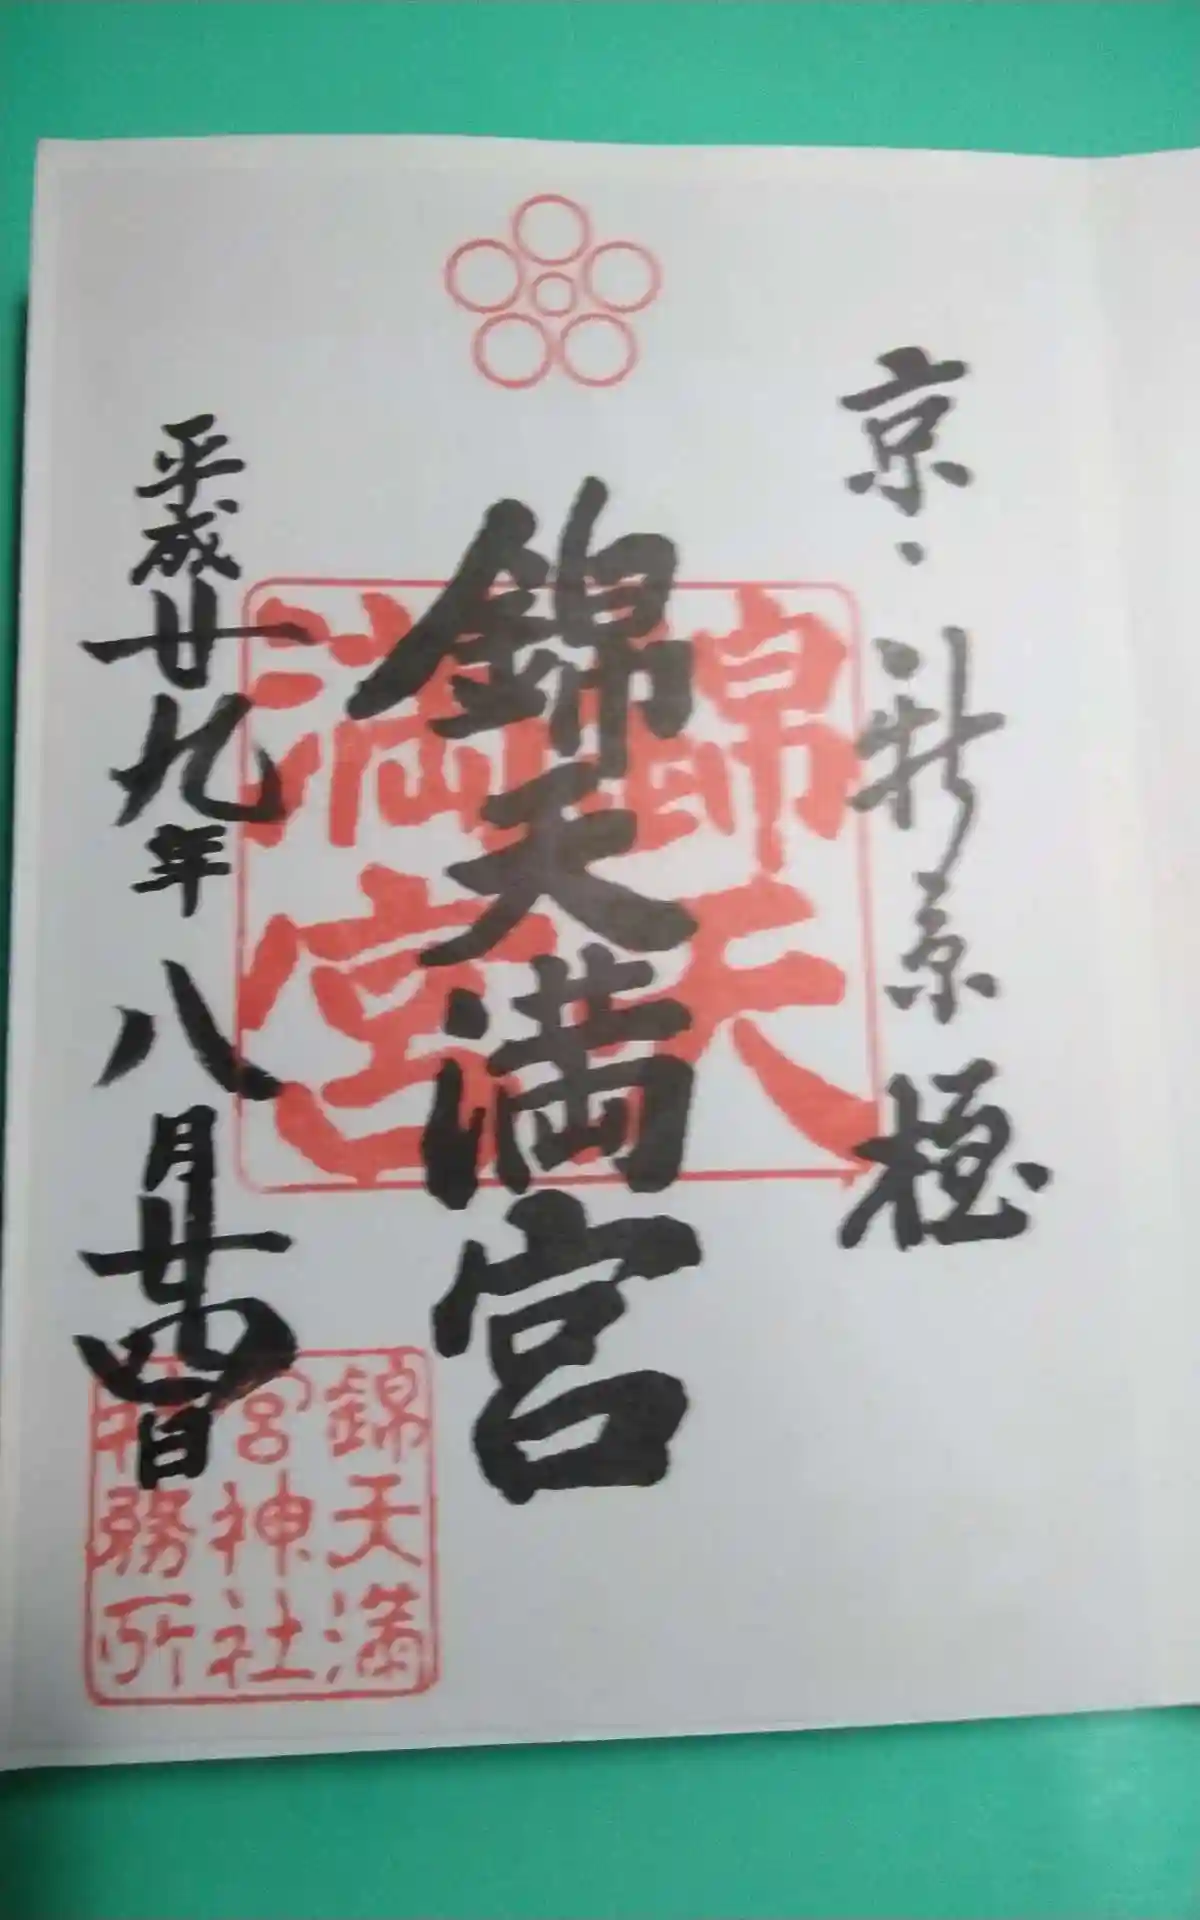 京・新京極
錦天満宮
錦天満宮
平成廿九年八月廿四日
錦天満
宮神社
社務所